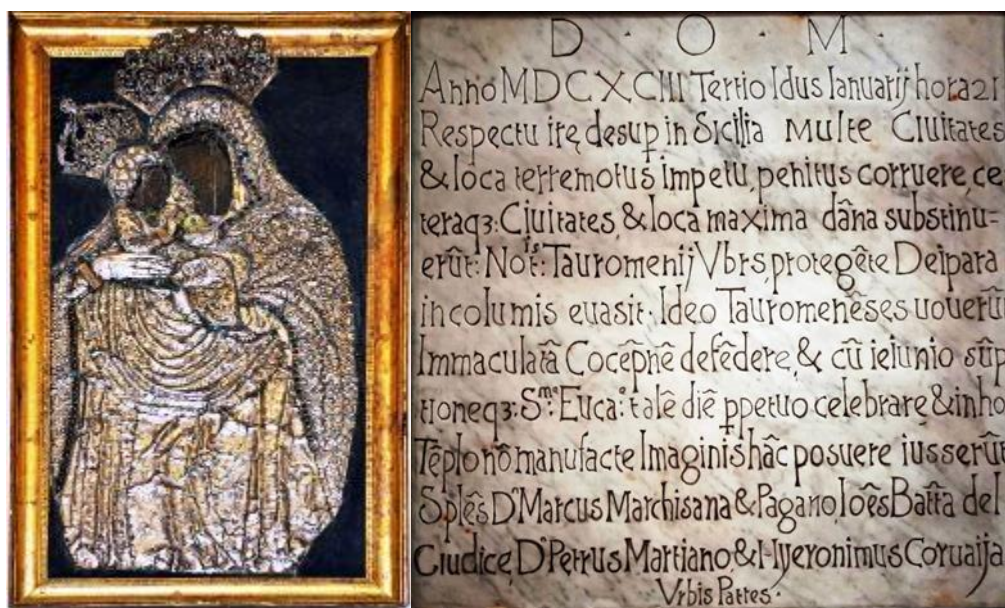 D · O · M ·
Anno MDCXCIII Tertio Idus Ianuarij hora 21
Respectu irę desup in Sicilia Multe Ciuitates
& loca terremotus impetu, penitus corruere, ce
teraqꝫ: Ciuitates, & loca maxima dâna substinu=
erût: Notis: Tauromenij Vbrs, protegête Deipara
incolumis euasit · Ideo Tauromenêses uouerû
Immaculatâ Cocêpnê defêdere, & cû ieiunio sûp
tioneqꝫ: Sme: Euca: talê diê ppetuo celebrare, & inho
Têplo nô manufacte Imaginis hâc posuere iusserût
Splês D. Marcus Marchisana & Pagano, Ioês Batta del
Ciudice, D. Petrus Martiano, & Hyeronimus Coruaija
Vrbis Patres ·